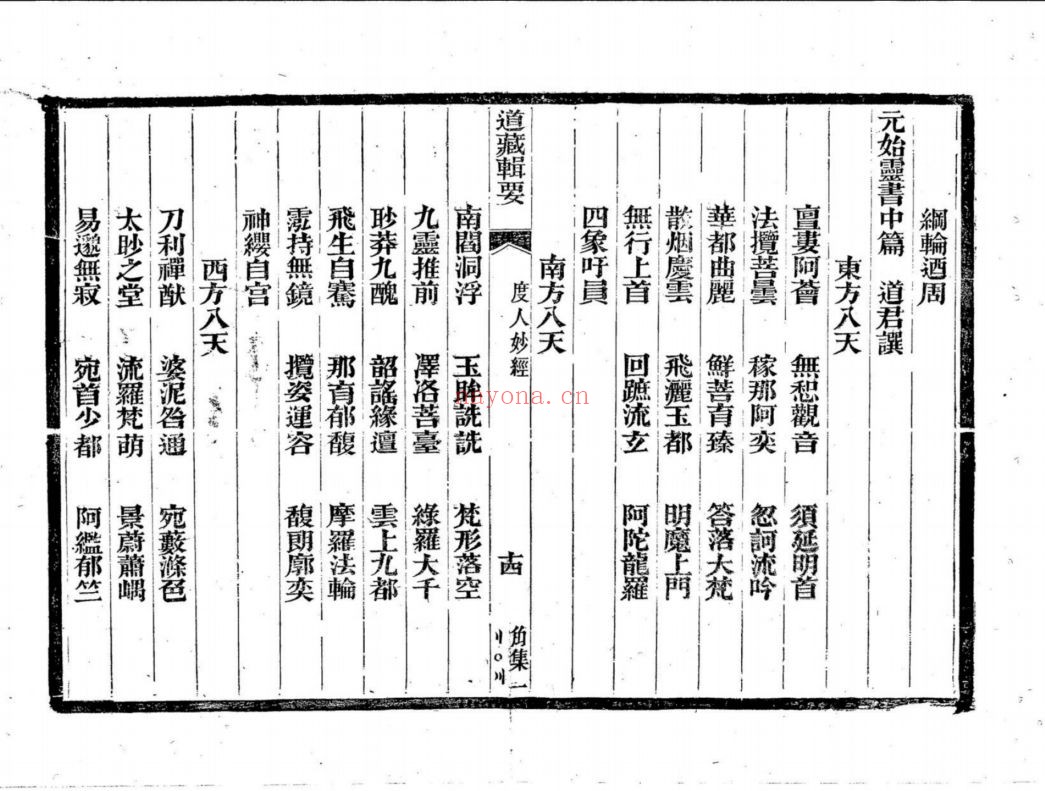 綱輪迺周
元始靈書中篇　道君譔
東方八天
亶婁阿薈　無惒觀音　須延明首
法攬菩曇　稼那阿奕　忽訶流吟
華都曲麗　鮮菩育臻　答落大梵
散烟慶雲　飛灑玉都　明魔上門
無行上首　回蹠流玄　阿陀龍羅
四象吁員
南方八天
道藏輯要　度人妙經　十四　角集一
南閻洞浮　玉眸詵詵　梵形落空
九靈推前　澤洛菩臺　綠羅大千
眇莽九醜　韶謠緣邅　雲上九都
飛生自騫　那育郁馥　摩羅法輪
霐持無鏡　攬姿運容　馥朗廓奕
神纓自宮
西方八天
刀利禪猷　婆泥咎通　宛藪滌色
太眇之堂　流羅梵萌　景蔚蕭嵎
易邈無寂　宛首少都　阿㜮郁竺
hnyona.cn